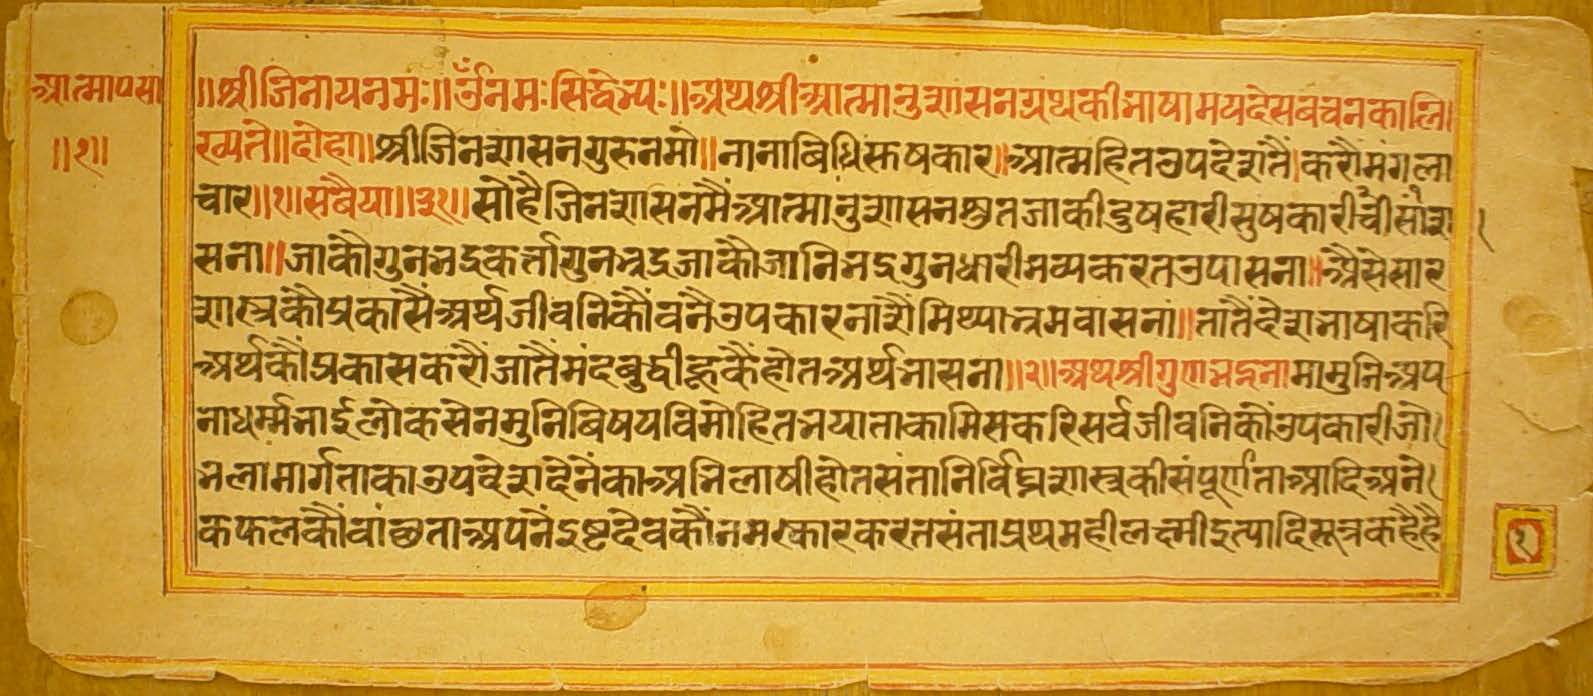 आत्मापसा
॥१॥
॥श्रीजिनायनमः॥ॐनमःसिद्धेभ्यः॥अथश्रीआत्मानुशासनग्रंथकीभाषामयदेसवचनकालि।
ख्यते॥दोहा॥श्रीजिनशासनगुरुनमो॥नानाबिधिसुषकार॥आत्महितउपदेशतैं।करौंमंगला
चार॥१॥सवैया॥३१॥सोहैजिनशासनमैंआत्मांनुशासनश्रुतजाकीदुषहारीसुषकारीचीसांशा
सना॥जाकौगुनभद्रकर्त्तागुनभद्रजाकौजानिभद्रगुनधारीभव्यकरतउपासना॥अैसेसार
शास्त्रकौप्रकासैंअर्थजीवनिकौंवनैउपकारनाशैंमिथ्यात्भ्रमवासनां॥तातैंदेशभाषाकरि
अर्थकौंप्रकासकरौंजातैंमंदबुद्धीहूकैंहोतअर्थभासना॥२॥अथश्रीगुणभद्रनामामुनिअप
नाधर्म्मभाईलोकसेनमुनिबिषयविमोहितभयाताकामिसकरिसर्वजीवनिकौंउपकारीजो।
भलामार्गताकाउपदेशदेनेंकाअभिलाषीहोतसंतानिर्विघ्नशास्त्रकीसंपूर्णताआदिअने।
कफलकौंवांछताअपनेंइष्टदेवकौंनमस्कारकरतसंताप्रथमहीलक्ष्मीइत्यादिसूत्रकहैहै
१